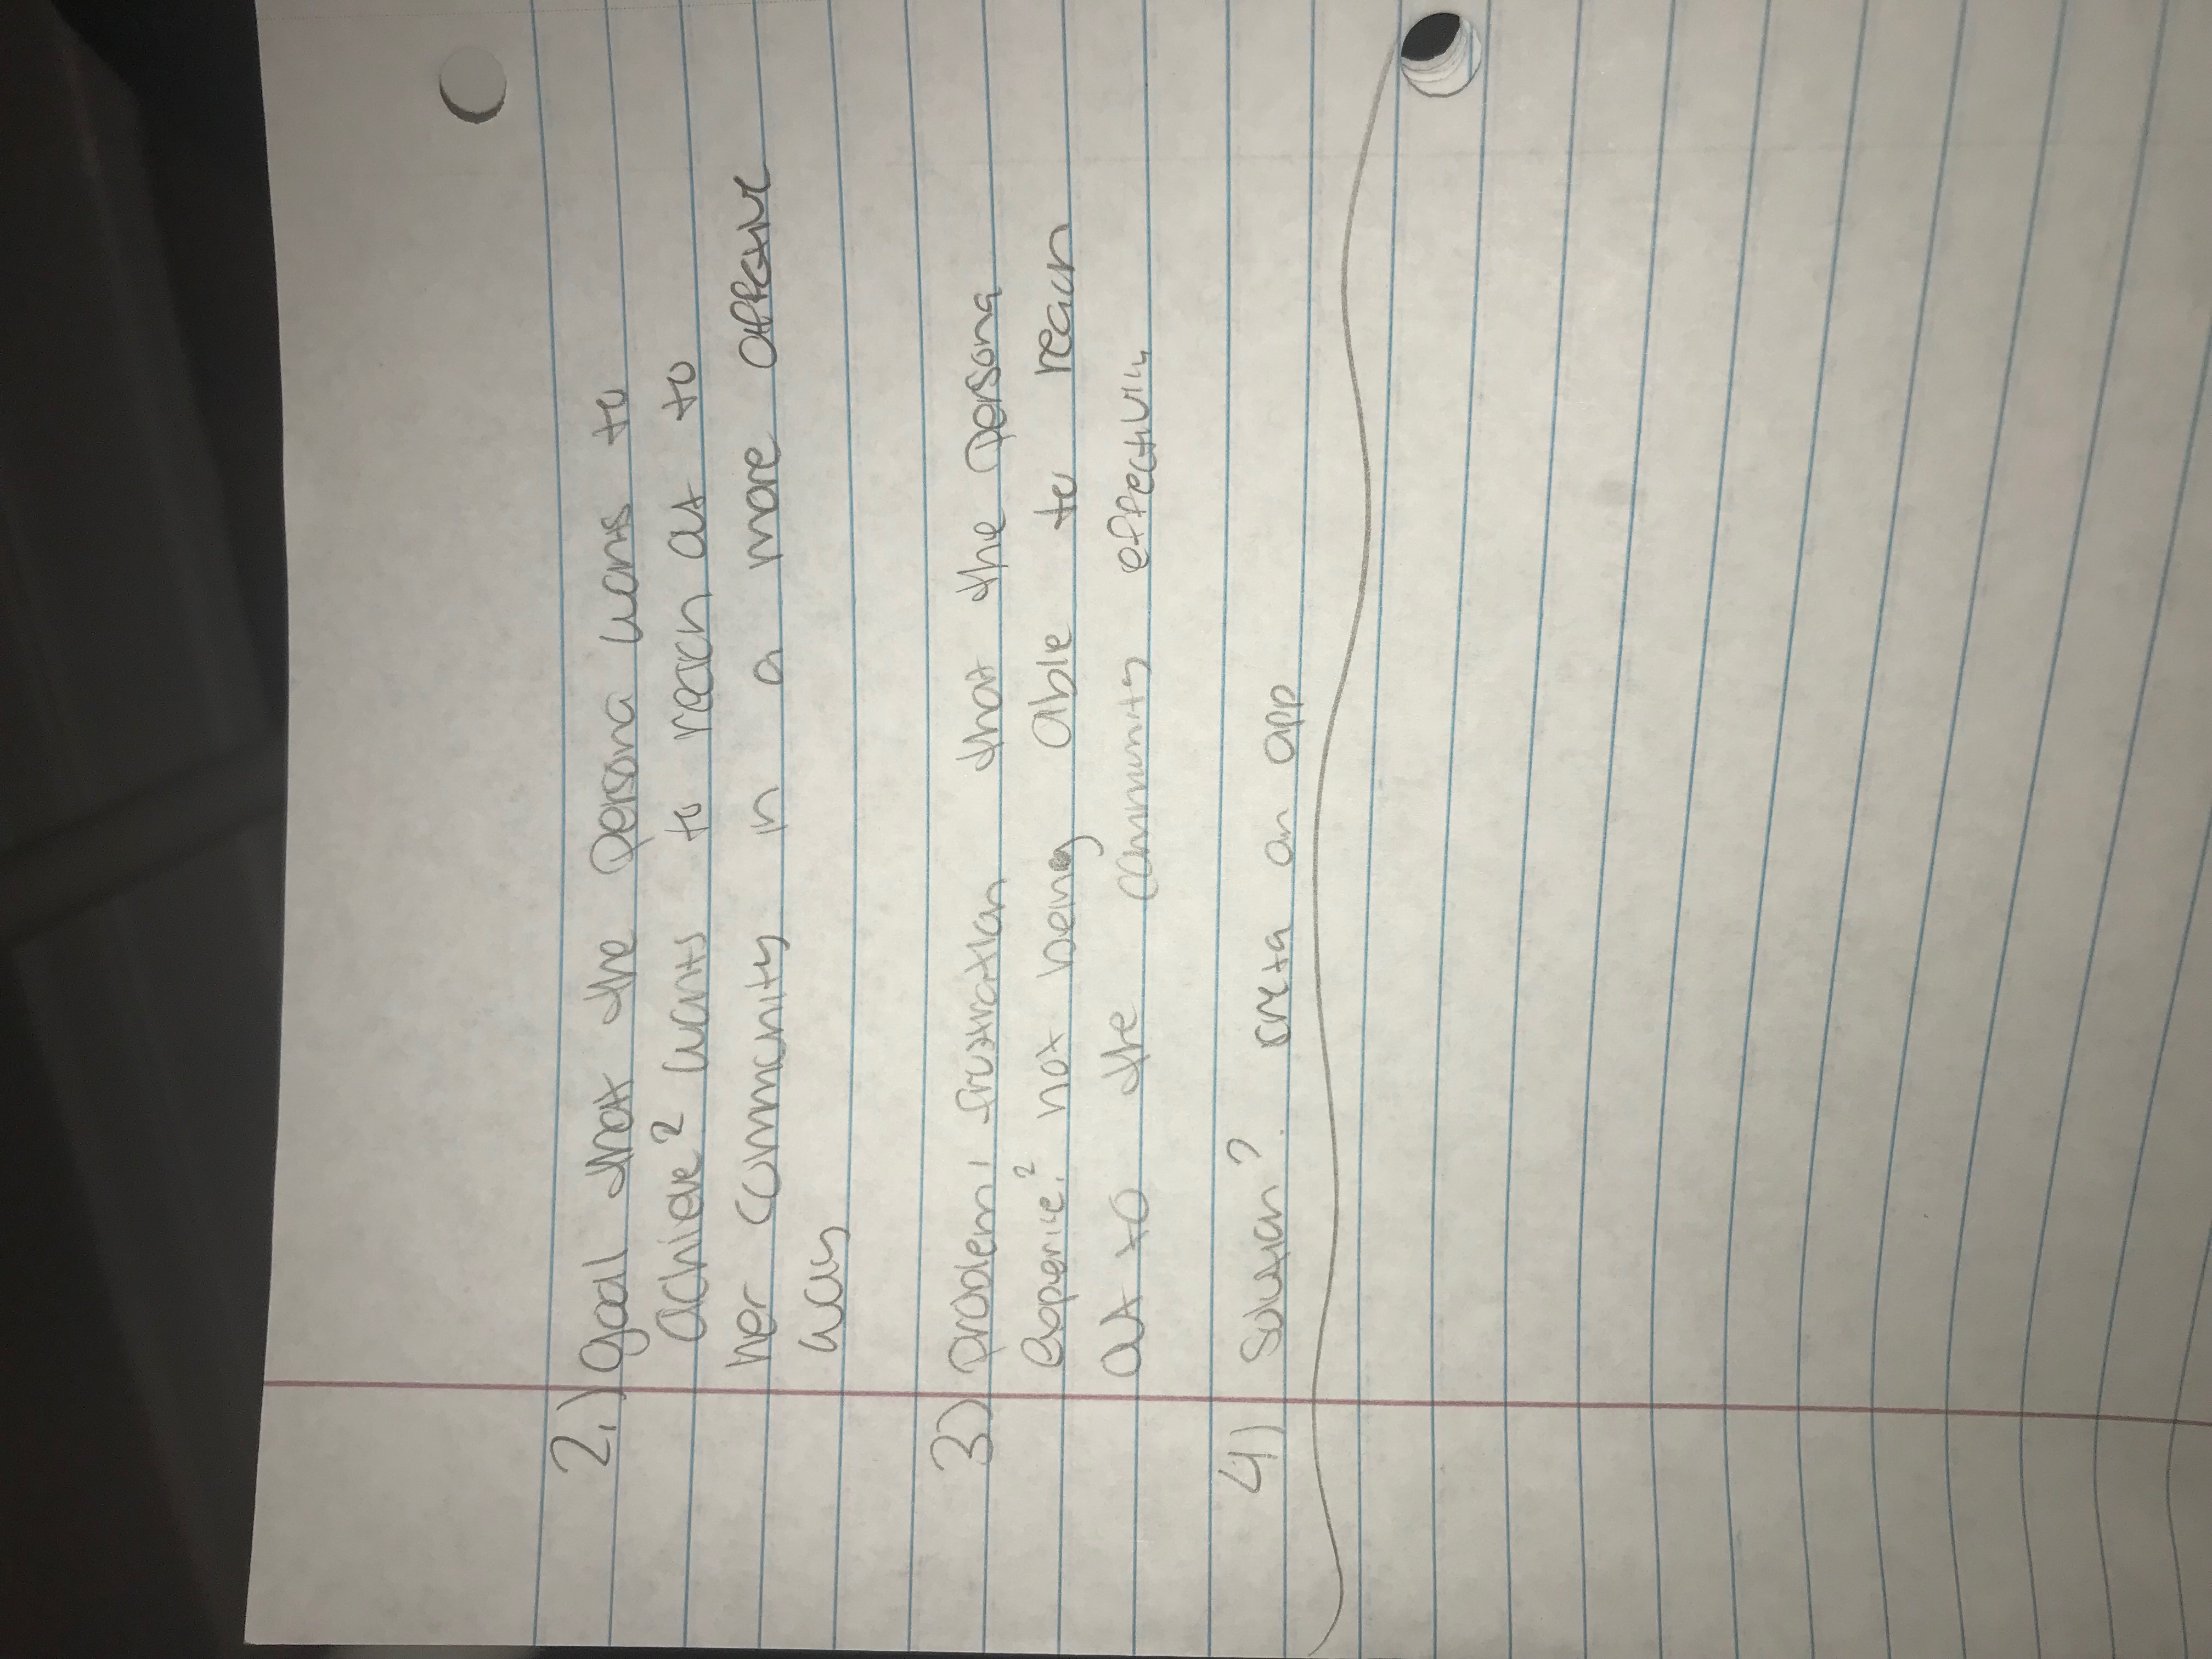 2.) goal that the persona wants to
achieve? wants to reach out to
her community in a more effective
way
3) problem, frustration that the persona
experice? not being able to reach
out to the community effectivly
4) Solution? creta an app